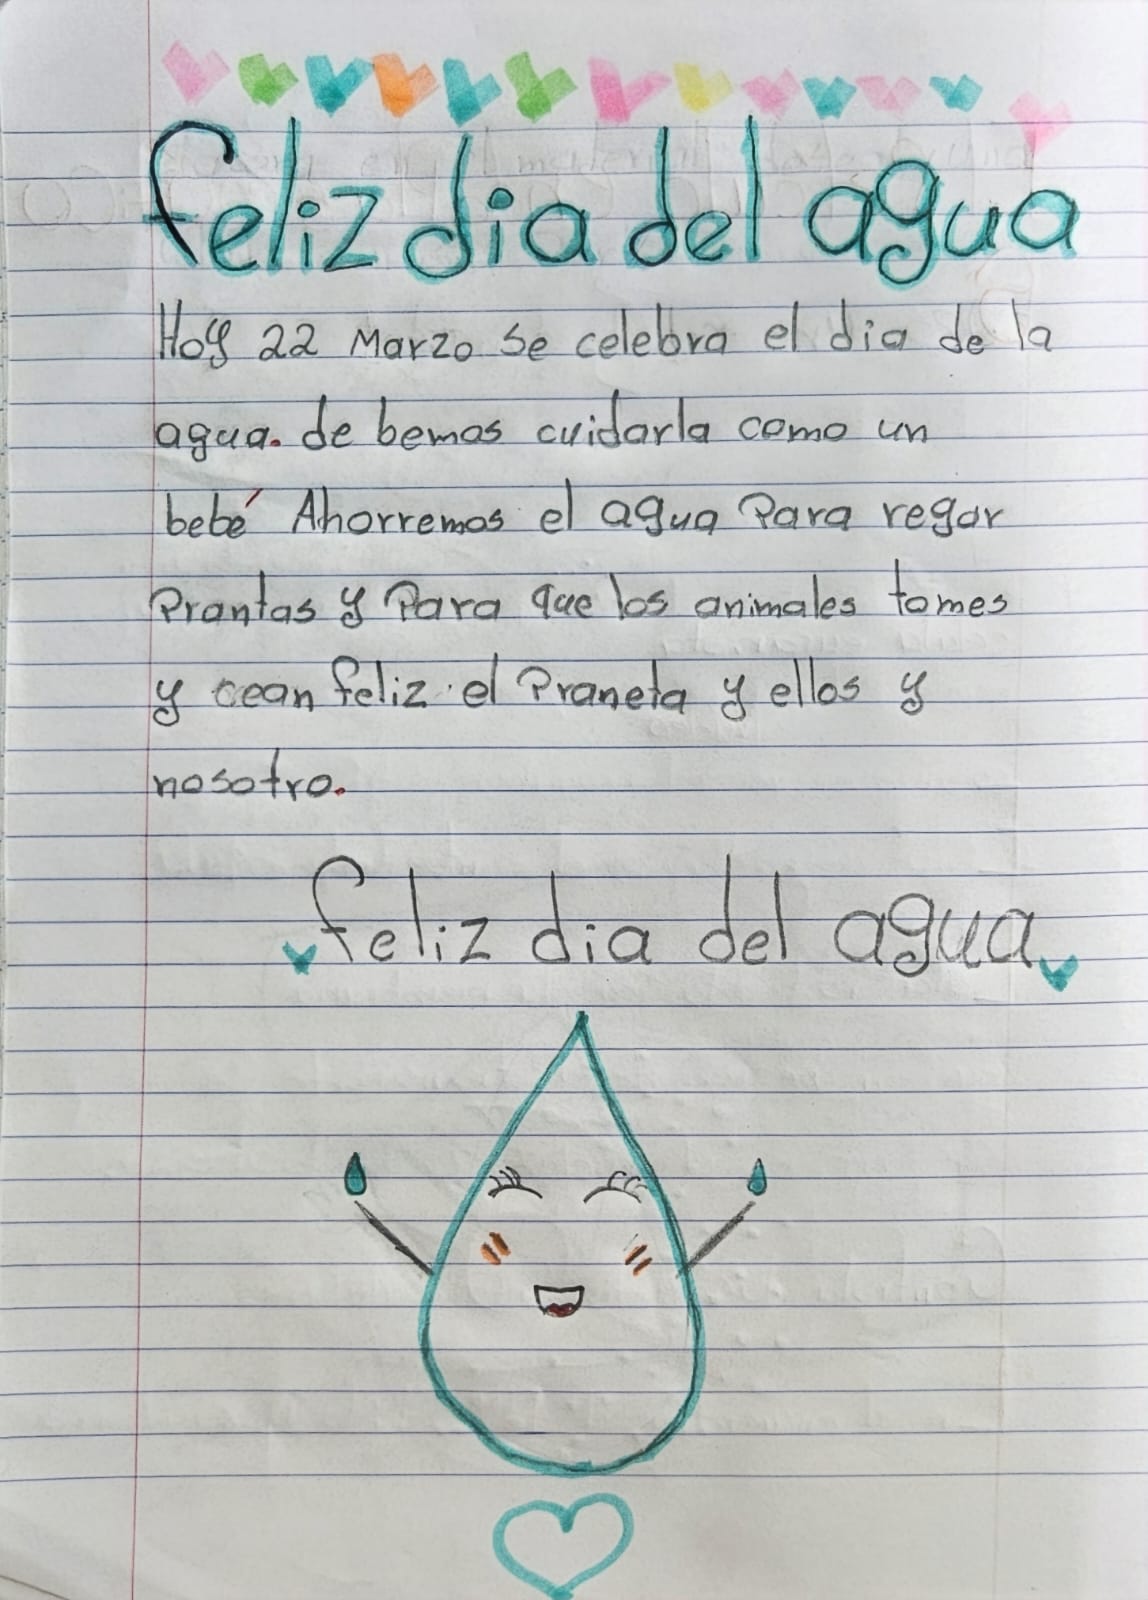 feliz dia del agua
Hoy 22 Marzo se celebra el dia de la
agua. de bemos cuidarla como un
bebé Ahorremos el agua Para regar
Prantas y Para que los animales tomes
y cean feliz el Praneta y ellos y
nosotro.
feliz dia del agua